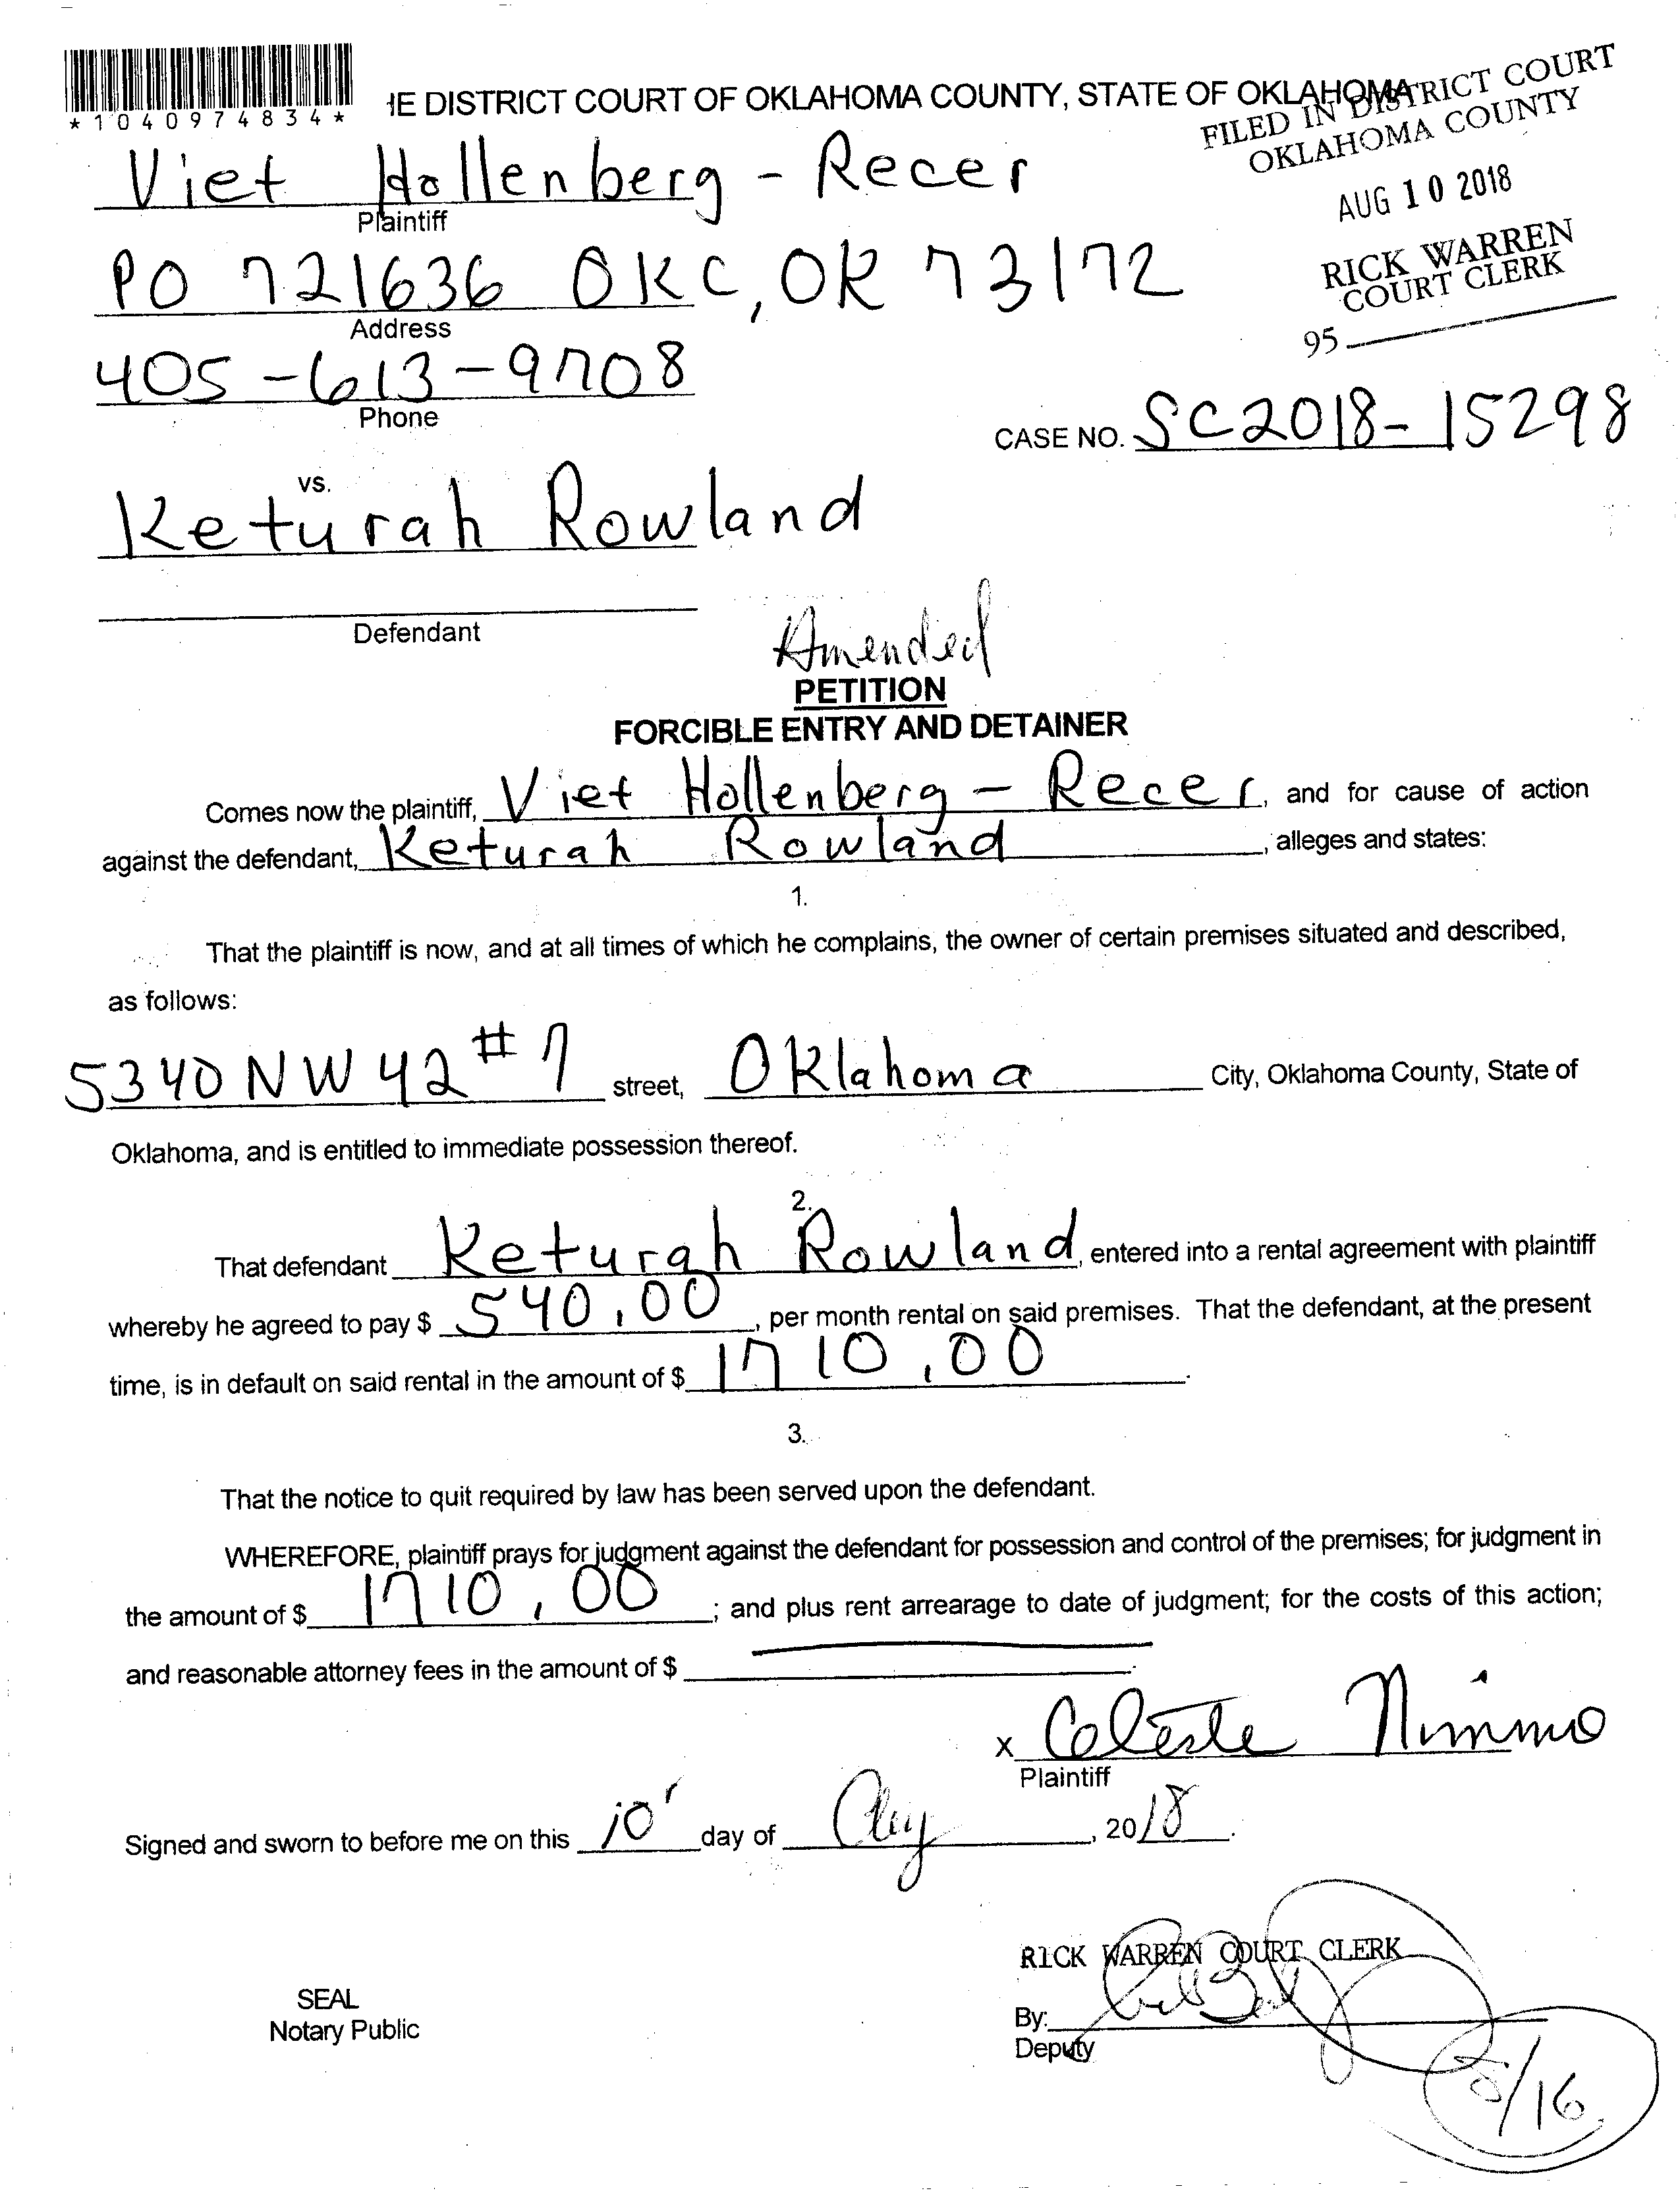 *1040974834*
HE DISTRICT COURT OF OKLAHOMA COUNTY, STATE OF OKLAHOMA
FILED IN DISTRICT COURT
OKLAHOMA COUNTY
AUG 10 2018
RICK WARREN
COURT CLERK
95
Viet Hollenberg - Recer
Plaintiff
PO 721636 OKC, OK 73172
Address
405-613-9708
Phone
CASE NO. SC2018-15298
vs.
Keturah Rowland
Defendant
Amended
PETITION
FORCIBLE ENTRY AND DETAINER
Comes now the plaintiff, Viet Hollenberg - Recer, and for cause of action
against the defendant, Keturah Rowland, alleges and states:
1.
That the plaintiff is now, and at all times of which he complains, the owner of certain premises situated and described,
as follows:
5340 NW 42 #7 street, Oklahoma City, Oklahoma County, State of
Oklahoma, and is entitled to immediate possession thereof.
2.
That defendant Keturah Rowland, entered into a rental agreement with plaintiff
whereby he agreed to pay $ 540.00, per month rental on said premises. That the defendant, at the present
time, is in default on said rental in the amount of $ 1710.00.
3.
That the notice to quit required by law has been served upon the defendant.
WHEREFORE, plaintiff prays for judgment against the defendant for possession and control of the premises; for judgment in
the amount of $ 1710.00; and plus rent arrearage to date of judgment; for the costs of this action;
and reasonable attorney fees in the amount of $
x Celeste Nimmo
Plaintiff
Signed and sworn to before me on this 10 day of Aug, 2018.
RICK WARREN COURT CLERK
SEAL
Notary Public
By:
Deputy
8/16